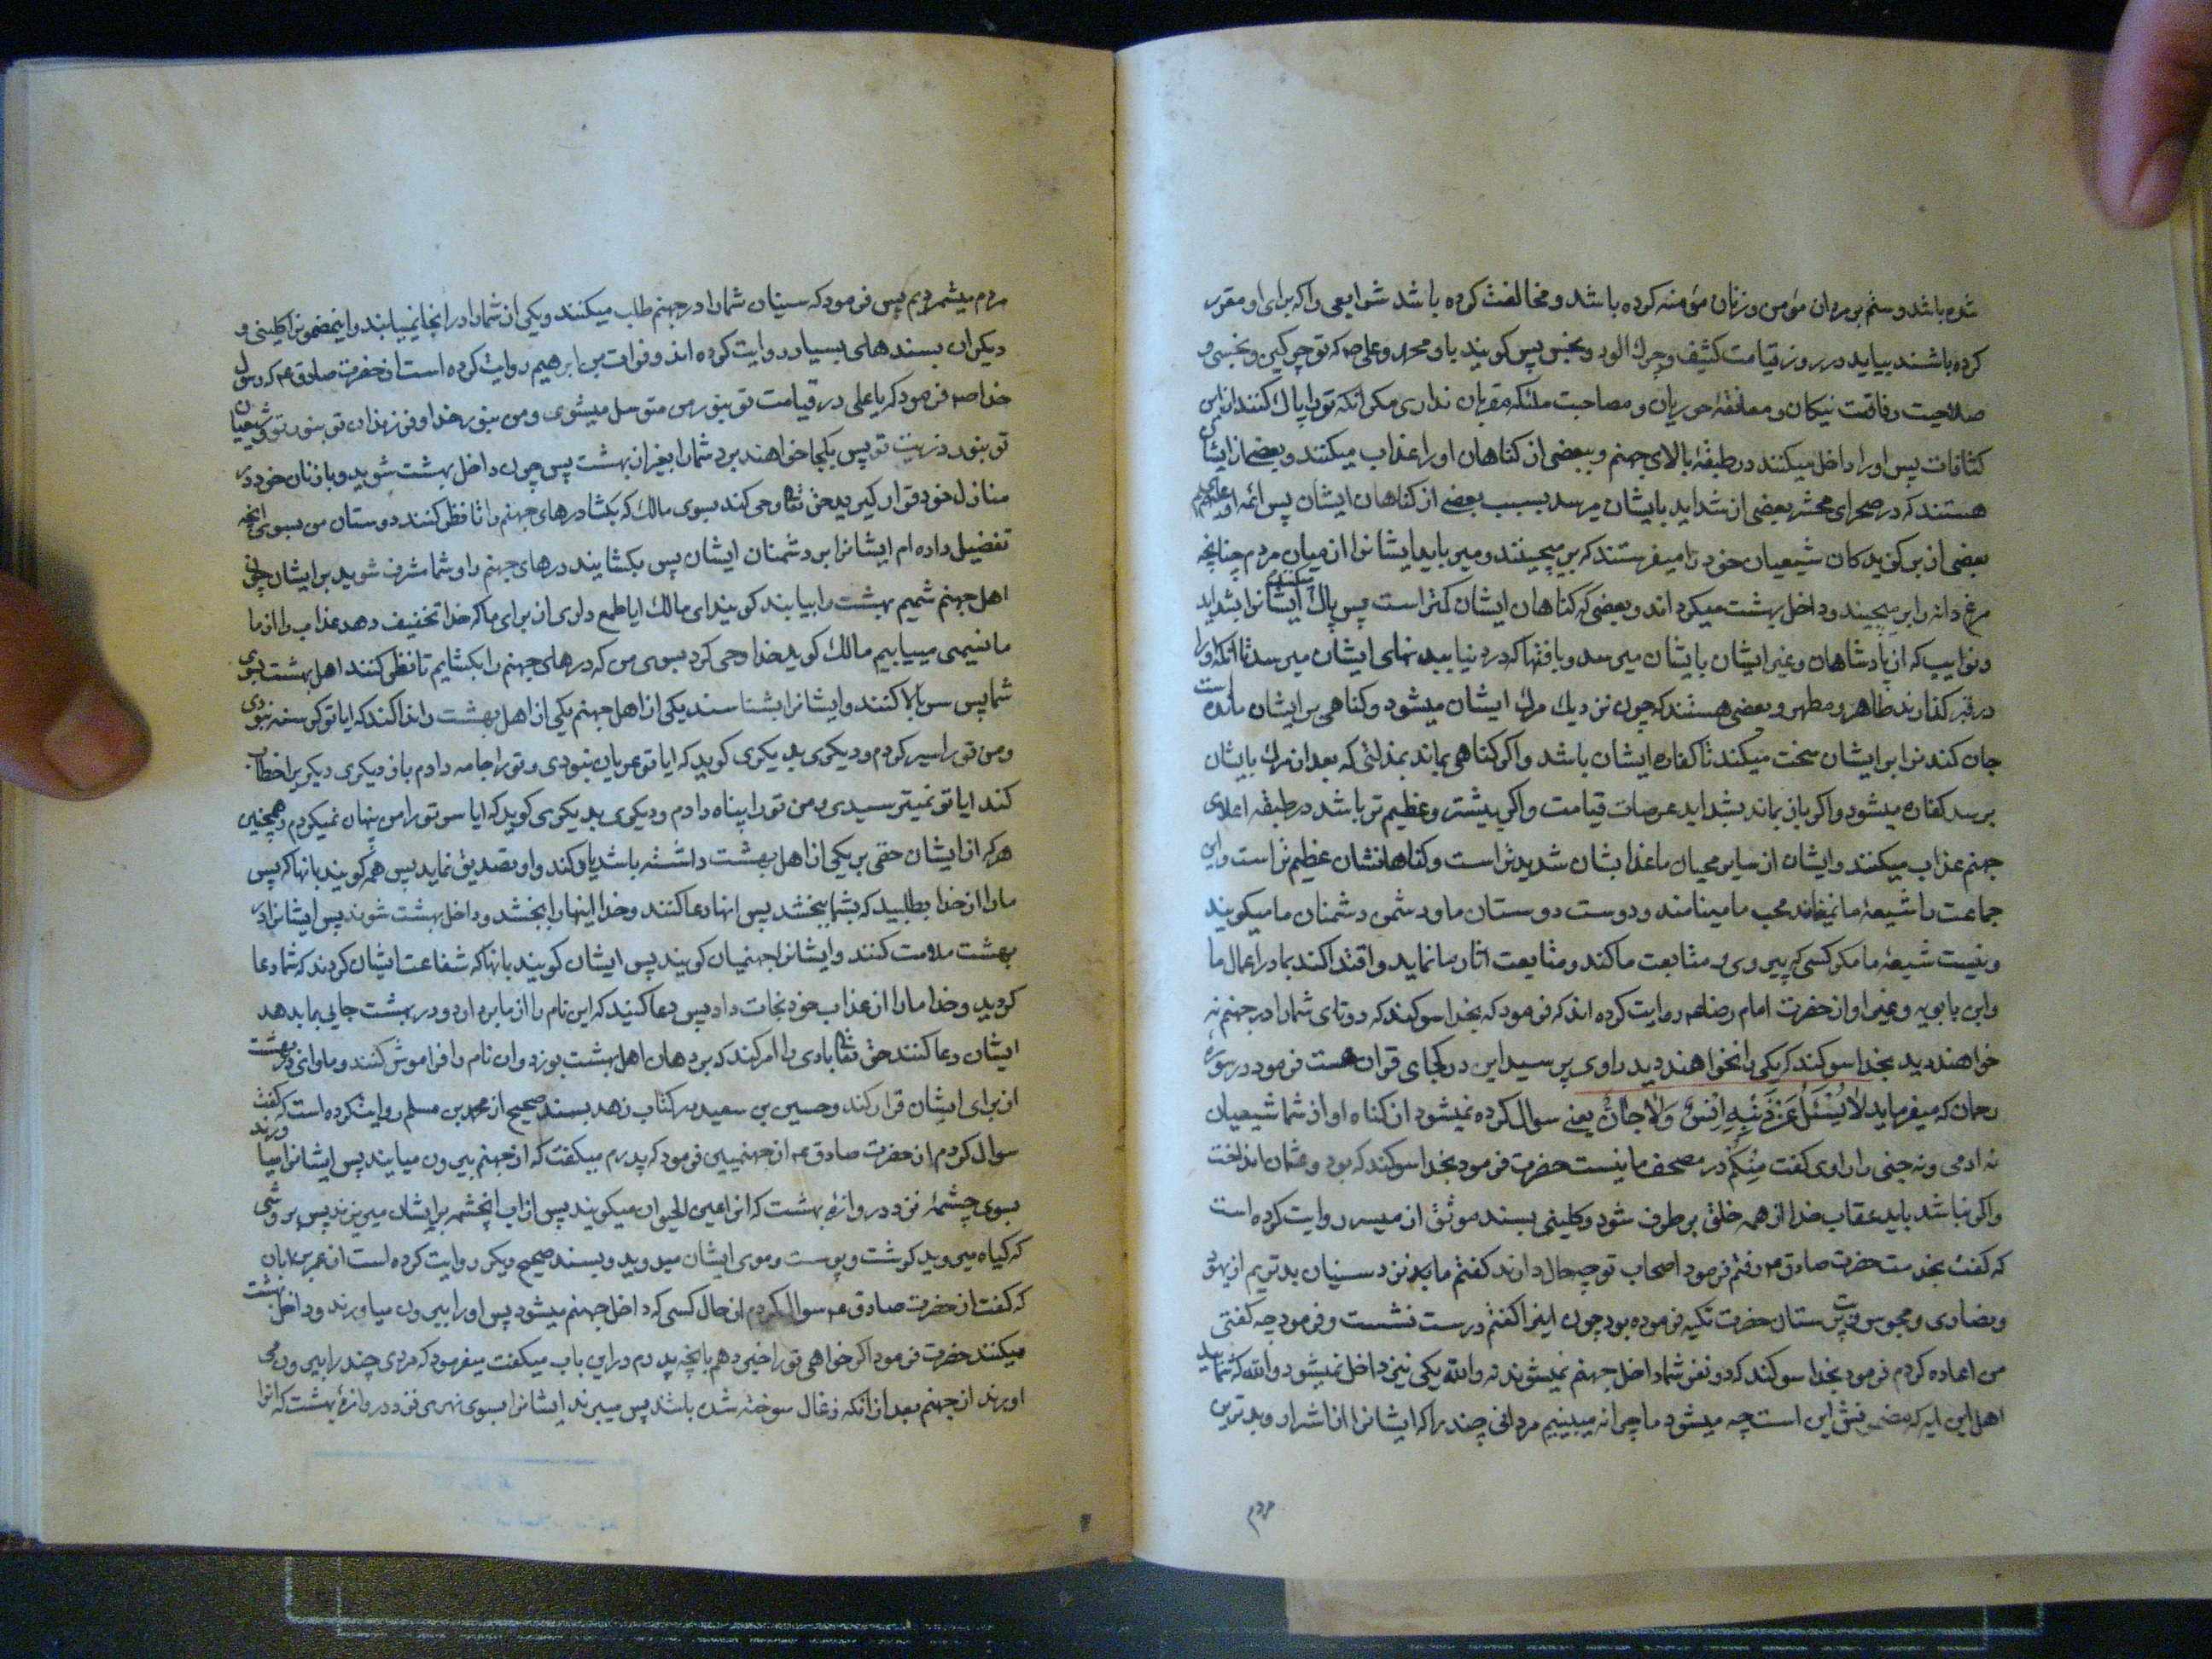 شده باشد و ستم بر مردان مؤمن و زنان مؤمنه کرده باشد و مخالفت کرده باشد شرایعی را که برای او مقرر
کرده باشند بیاید در روز قیامت کثیف و چرك الود و نجس پس کویند باو محمد و علی ص که تو چرکینی و نجسی و
صلاحیت رفاقت نیکان و معانقهٔ حوریان و مصاحبت ملئکه مقربان نداری مکر انکه تو را پاك کنند از این
کثافات پس او را داخل میکنند در طبقهٔ بالای جهنم و ببعضی از کناهان او را عذاب میکنند و بعضی از ایشان
هستند که در صحرای محشر بعضی از شداید بایشان میرسد بسبب بعضی از کناهان ایشان پس ائمه او علیهم
بعضی از برکزیدکان شیعیان خود را میفرستند که برمیچینند و میربایند ایشانرا از میان مردم چنانچه
مرغ دانه را برمیچیند و داخل بهشت میکرداند و بعضی که کناهان ایشان کمتر است پس پاك میکنند ایشانرا بشداید
و نوایب که از پادشاهان و غیر ایشان بایشان میرسد و بافتها که در دنیا ببدنهای ایشان میرسد تا انکه او را
در قبر کذارند طاهر و مطهر و بعضی هستند که چون نزدیك مرك ایشان میشود و کناهی بر ایشان مانده است
جان کندنرا بر ایشان سخت میکند تا کفارهٔ ایشان باشد و اکر کناهی بماند بمذلتی که بعد از مرك بایشان
برسد کفاره میشود و اکر باز بماند بشداید عرصات قیامت و اکر بیشتر و عظیم تر باشد در طبقهٔ اعلای
جهنم عذاب میکنند و ایشان از سایر محبان ما عذابشان شدیدتر است و کناهانشان عظیم تر است و این
جماعت را شیعهٔ ما نمینامند محب ما مینامند و دوست دوستان ما و دشمن دشمنان ما میکویند
و نیست شیعهٔ ما مکر کسی که پیروی و متابعت ما کند و متابعت اثار ما نماید و اقتدا کند بما در اعمال ما
و ابن بابویه و غیر او از حضرت امام رضا ع روایت کرده اند که فرمود که بخدا سوکند که دوتای شما را در جهنم نه
خواهند دید بخدا سوکند که یکی را نخواهند دید راوی پرسید این در کجای قران هست فرمود در سورهٔ
رحمان که میفرماید لا یُسْئَلُ عَنْ ذَنْبِهِ اِنْسٌ وَلا جانٌّ یعنی سوال کرده نمیشود از کناه او از شما شیعیان
نه ادمی و نه جنی را راوی کفت مِنْکُمْ در مصحف ما نیست حضرت فرمود بخدا سوکند که بود و عثمان انداخت
و اکر نباشد باید عقاب خدا از همه خلق برطرف شود و کلینی بسند موثق از میسر روایت کرده است
که کفت بخدمت حضرت صادق ع رفتم فرمود اصحاب تو چه حال دارند کفتم ما بد نزد سنیان بدتریم از یهود
و نصاری و مجوس و بت پرستان حضرت تکیه فرموده بود چون اینرا کفتم درست نشست و فرمود چه کفتی
من اعاده کردم فرمود بخدا سوکند که دو نفر شما داخل جهنم نمیشوند نه والله یکی نیز داخل نمیشود والله که شمائید
اهل این ایه که مضمونش این است چه میشود ما را چرا نه میبینیم مردانی چند را که ایشانرا از اشرار و بدترین
مردم
مردم میشمردیم پس فرمود که سنیان شما را در جهنم طلب میکنند و یکی از شما را در انجا نمییابند و اینمضمونرا کلینی و
دیکران بسندهای بسیار روایت کرده اند و فرات بن ابرهیم روایت کرده است از حضرت صادق ع که رسول
خدا ص فرمود که یا علی در قیامت تو بنور من متوسل میشوی و من بنور خدا و فرزندان تو بنور تو و شیعیان
تو بنور ذریت تو پس بکجا خواهند برد شما را بغیر از بهشت پس چون داخل بهشت شوید و با زنان خود در
منازل خود قرار کیرید حق تعا وحی کند بسوی مالك که بکشا درهای جهنم را تا نظر کنند دوستان من بسوی انچه
تفضیل داده ام ایشانرا بر دشمنان ایشان پس بکشایند درهای جهنم را و شما مشرف شوید بر ایشان چون
اهل جهنم شمیم بهشت را بیابند کویند ای مالك ایا طمع داری از برای ما که خدا تخفیف دهد عذاب را از ما
ما نسیمی مییابیم مالك کوید خدا وحی کرد بسوی من که درهای جهنم را بکشایم تا نظر کنند اهل بهشت بسوی
شما پس سر بالا کنند و ایشانرا بشناسند یکی از اهل جهنم یکی از اهل بهشت را ندا کند که ایا تو کرسنه نبودی
و من تو را سیر کردم و دیکری بدیکری کوید که ایا تو عریان نبودی و تو را جامه دادم باز دیکری دیکر را خطاب
کند ایا تو نمیترسیدی و من تو را پناه دادم و دیکری بدیکری کوید که ایا سر تو را من پنهان نمیکردم و همچنین
هرکه از ایشان حقی بر یکی از اهل بهشت داشته باشد یاد کند و او تصدیق نماید پس همه کویند بانها که پس
ما را از خدا بطلبید که بشما ببخشد پس انها دعا کنند و خدا اینها را ببخشد و داخل بهشت شوند پس ایشانرا در
بهشت ملامت کنند و ایشانرا جهنمیان کویند پس ایشان کویند بانها که شفاعت ایشان کردند که شما دعا
کردید و خدا ما را از عذاب خود نجات داد پس دعا کنید که این نام را از ما بردارد و در بهشت جایی بما بدهد
ایشان دعا کنند حق تعا بادی را امر کند که بر دهان اهل بهشت بوزد و ان نام را فراموش کنند و ماوای در بهشت
از برای ایشان قرار کند و حسین بن سعید در کتاب زهد بسند صحیح از محمد بن مسلم روایت کرده است که کفت
سوال کردم از حضرت صادق ع از جهنمیین فرمود که پدرم میکفت که از جهنم بیرون میایند پس ایشانرا میا ورند
بسوی چشمهٔ نزد دروازهٔ بهشت که انرا عین الحیوان میکویند پس از اب انچشمه بر ایشان میریزند پس بروشی
که کیاه میروید کوشت و پوست و موی ایشان میروید و بسند صحیح دیکر روایت کرده است از عمر بن ابان
که کفت از حضرت صادق ع سوال کردم از حال کسی که داخل جهنم میشود پس او را بیرون میاورند و داخل بهشت
میکنند حضرت فرمود اکر خواهی تو را خبر دهم بانچه پدرم در این باب میکفت میفرمود که مردی چند را بیرون می
اورند از جهنم بعد از انکه زغال سوخته شده باشند پس میبرند ایشانرا بسوی نهری نزد دروازهٔ بهشت که انرا